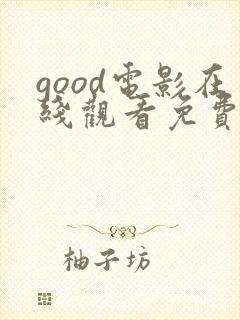 good電影在
綫觀看免費
柚子坊